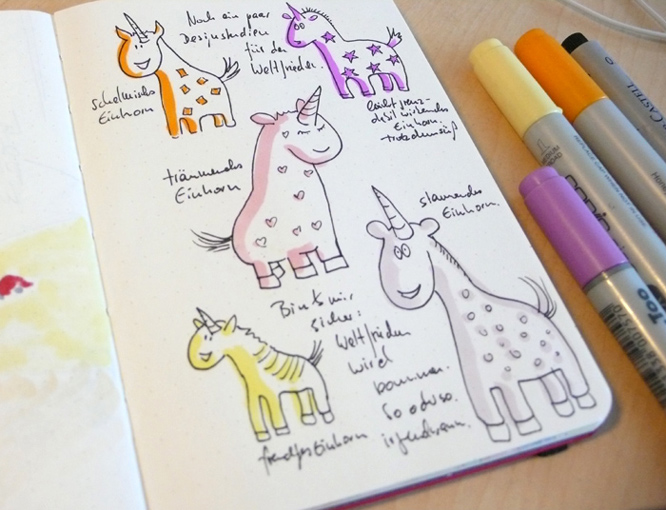 Noch ein paar
Designstudien
für den
Weltfrieden.
schelmisches
Einhorn
leicht grenz-
debil wirkendes
Einhorn.
trotzdem süß
träumendes
Einhorn
staunendes
Einhorn.
Bin mir
sicher:
Weltfrieden
wird
kommen.
So oder so.
irgendwann.
freches Einhorn
CASTELL
Too